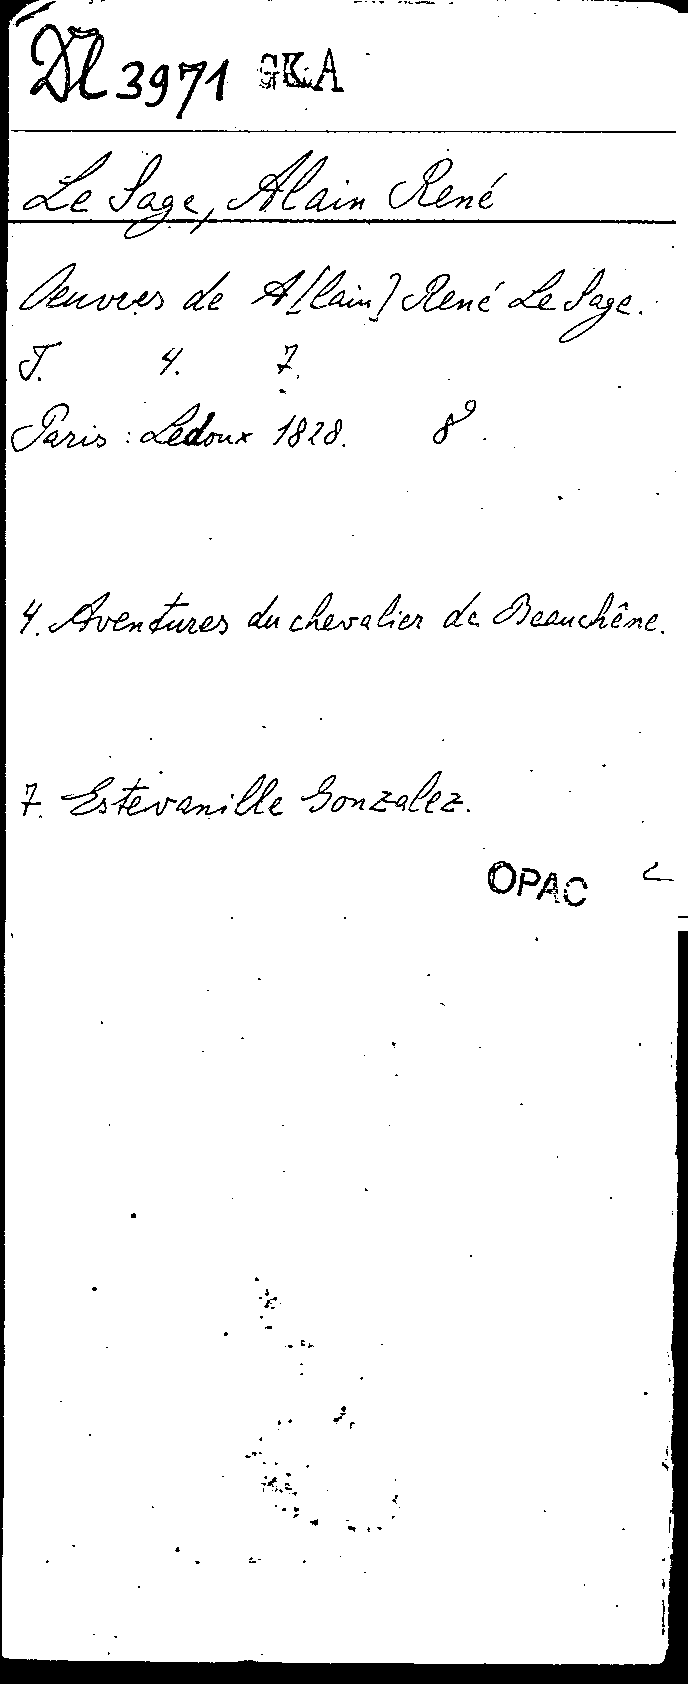 Dl 3971 GKA
Le Sage, Alain René
Oeuvres de A[lain] René Le Sage.
T. 4. 7.
Paris: Ledoux 1828. 8°.
4. Aventures du chevalier de Beauchêne.
7. Estevanille Gonzalez.
OPAC